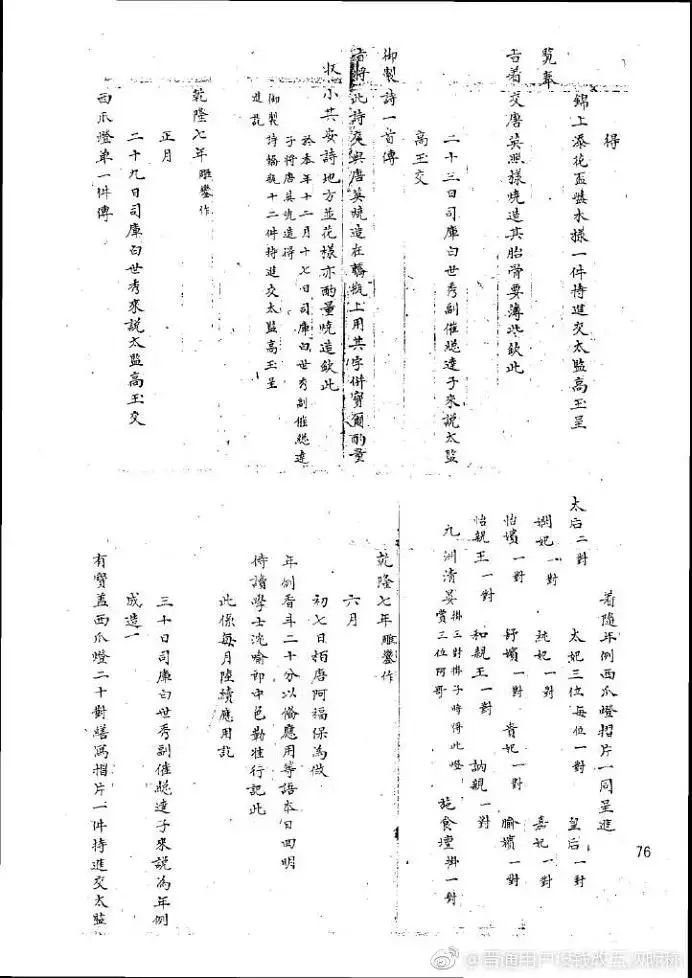 得
錦上添花盃樣木樣一件持進交太監高玉呈
覽奉
旨着交唐英照樣燒造其胎骨要薄些欽此
二十三日司庫白世秀副催總達子來說太監
高玉交
御製詩一首傳
旨將此詩交與唐英燒造在轎瓶上用其字併寶爾酌量
收小其安詩地方並花樣亦酌量燒造欽此
於本年十二月十七日司庫白世秀副催總達
子將唐英燒造得
御製詩轎瓶十二件持進交太監高玉呈
進訖
乾隆七年 雕鑾作
正月
二十九日司庫白世秀來說太監高玉交
西爪燈单一件傳
着隨年例西爪燈摺片一同呈進
太后二對 太妃三位每位一對 皇后一對
嫻妃一對 純妃一對 嘉妃一對
怡嬪一對 舒嬪一對 貴妃一對 愉嬪一對
怡親王一對 和親王一對 訥親一對
九洲清晏掛三對掛子時得此燈
賞三位阿哥 施食壇掛一對
乾隆七年 雕鑾作
六月
初七日栢唐阿福保為做
年例香斗二十分以備應用等語本日回明
侍讀學士沈喻郎中色勒准行記此
此係每月陸續應用訖
三十日司庫白世秀副催總達子來說為年例
成造一
有寶盖西爪燈二十對繕寫摺片一件持進交太監
76
@普通用户没钱改五次昵称